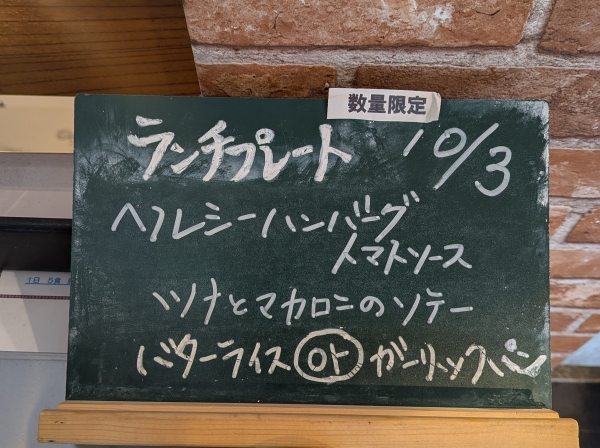 数量限定
ランチプレート 10/3
ヘルシーハンバーグ
トマトソース
ツナとマカロニのソテー
バターライス or ガーリックパン
1日 5食